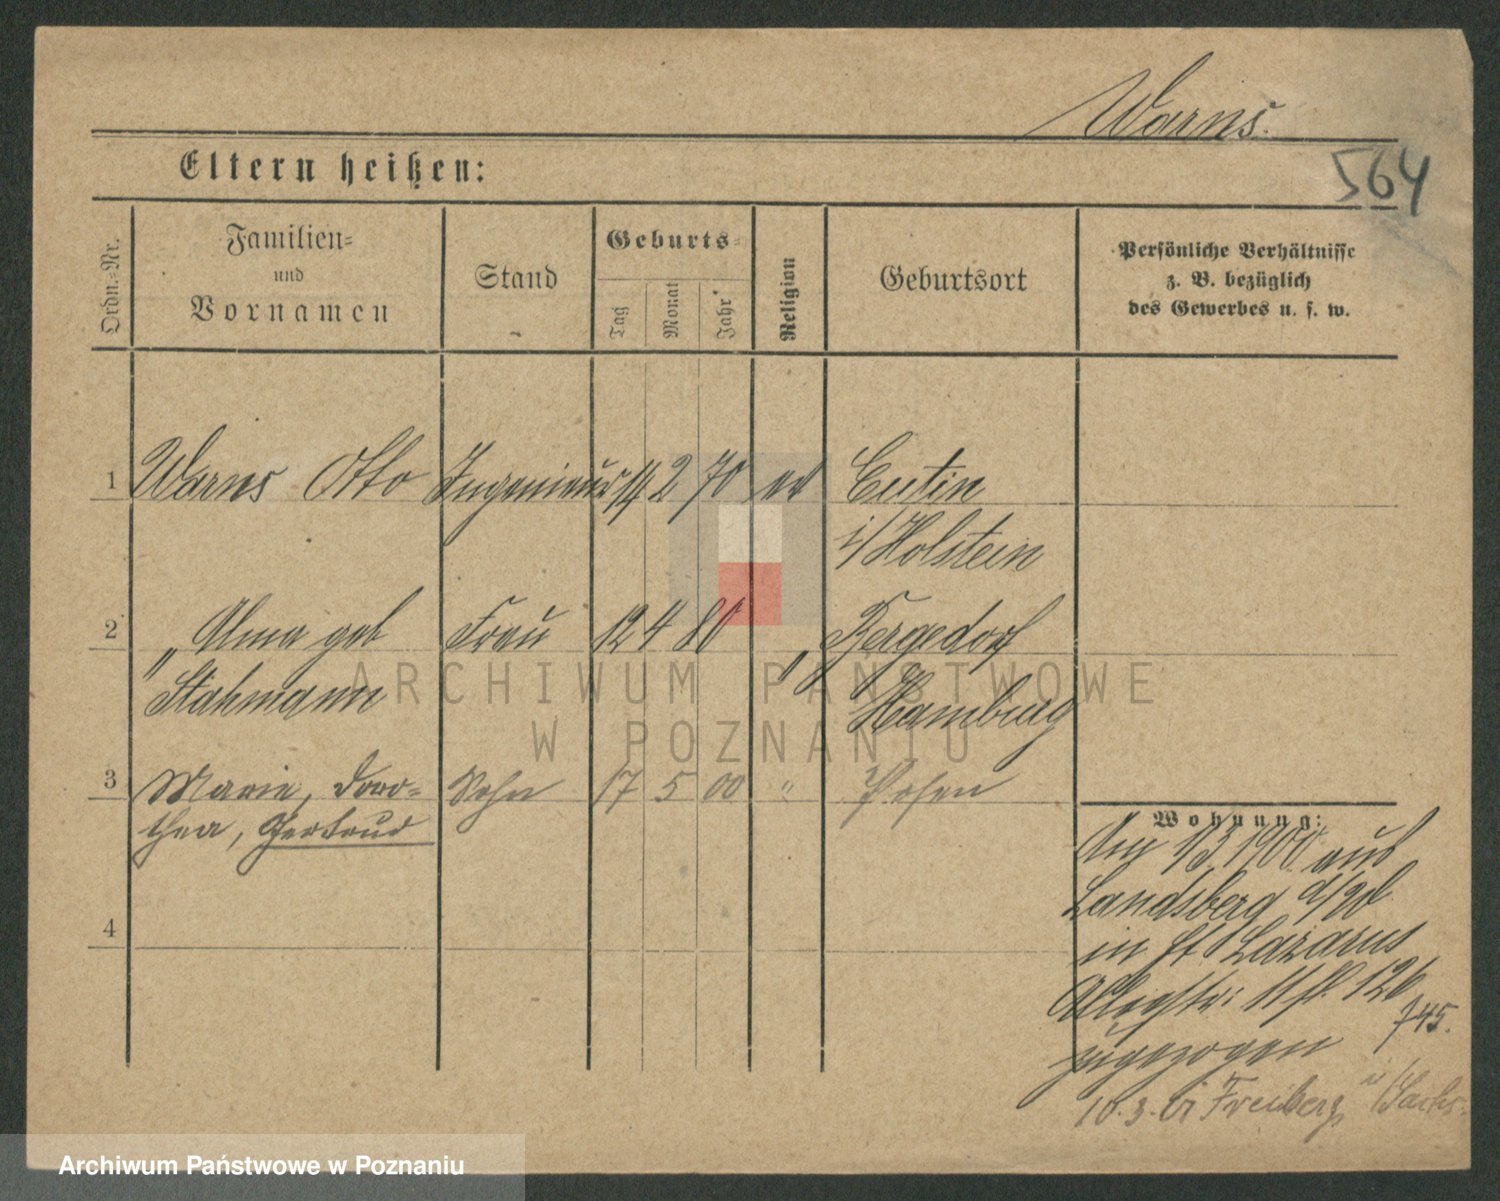 Warns.
564
Eltern heißen:
Ordn.-Nr.
Familien-
und
Vornamen
Stand
Geburts-
Tag
Monat
Jahr
Religion
Geburtsort
Persönliche Verhältnisse
z. B. bezüglich
des Gewerbes u. s. w.
1 Warns Otto Ingenieur 14 2 70 ev Eutin
i/Holstein
2 „ Alma geb Frau 12 4 80 „ Bergedorf
Stahmann Hamburg
3 Marie, Doro- Sohn 17 5 00 " Posen
thea, Gertrud
4
Wohnung:
Am 1/3. 1900 aus
Landsberg a/W
in St Lazarus
11 126
745.
zugezogen
10.3. Freiberg i/Sachs.
ARCHIWUM PAŃSTWOWE
W POZNANIU
Archiwum Państwowe w Poznaniu